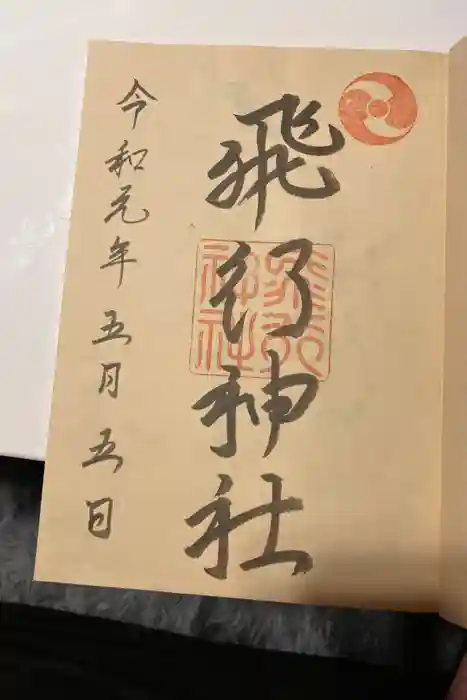 飛行神社
飛行
神社
令和元年五月五日